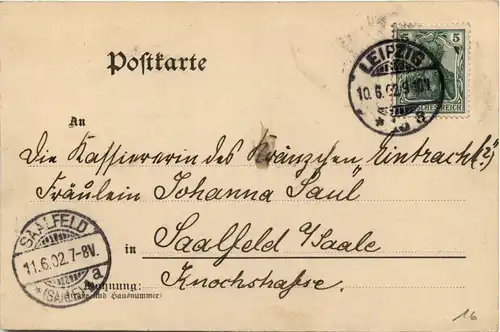 Postkarte
5
DEUTSCHES REICH
LEIPZIG
10.6.02. 9-10V.
* 13 a
An
Die Kassiererin des Kränzchen „Eintracht (2)"
Fräulein Johanna Saul
in Saalfeld a/Saale
Wohnung: Knochstraße.
(Straße und Hausnummer)
SAALFELD
11.6.02. 7-8V.
* (SAALE) a
16